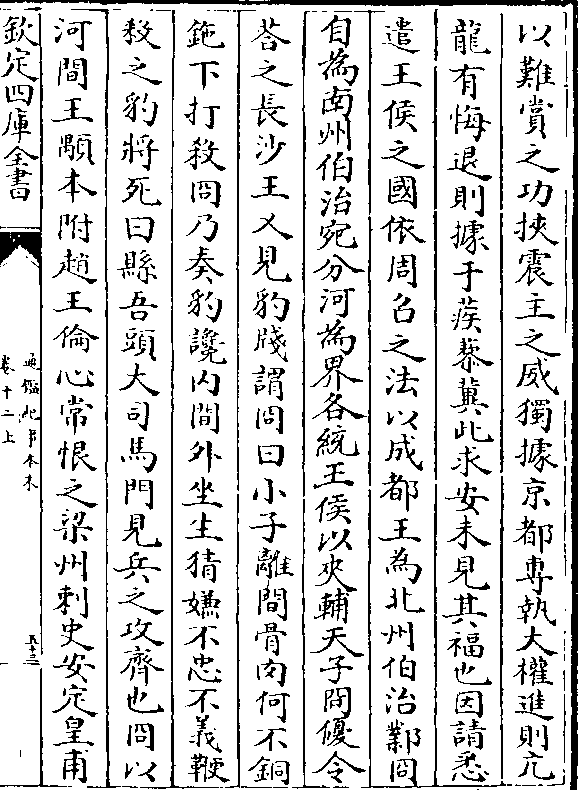 以難賞之功挾震主之威獨據京都専執大權進則亢
龍有悔退則據于蒺藜冀此求安未見其福也因請悉
遣王侯之國依周召之法以成都王為北州伯治鄴冏
自為南州伯治宛分河為界各統王侯以夾輔天子冏優令
荅之長沙王乂見豹牋謂冏曰小子離間骨肉何不銅
鉈下打殺冏乃奏豹讒内間外坐生猜嫌不忠不義鞭
殺之豹將死曰縣吾頭大司馬門見兵之攻齊也冏以
河間王顒本附趙王倫心常恨之梁州刺史安定皇甫
欽定四庫全書
通鑑紀事本末
卷十二上
五十三